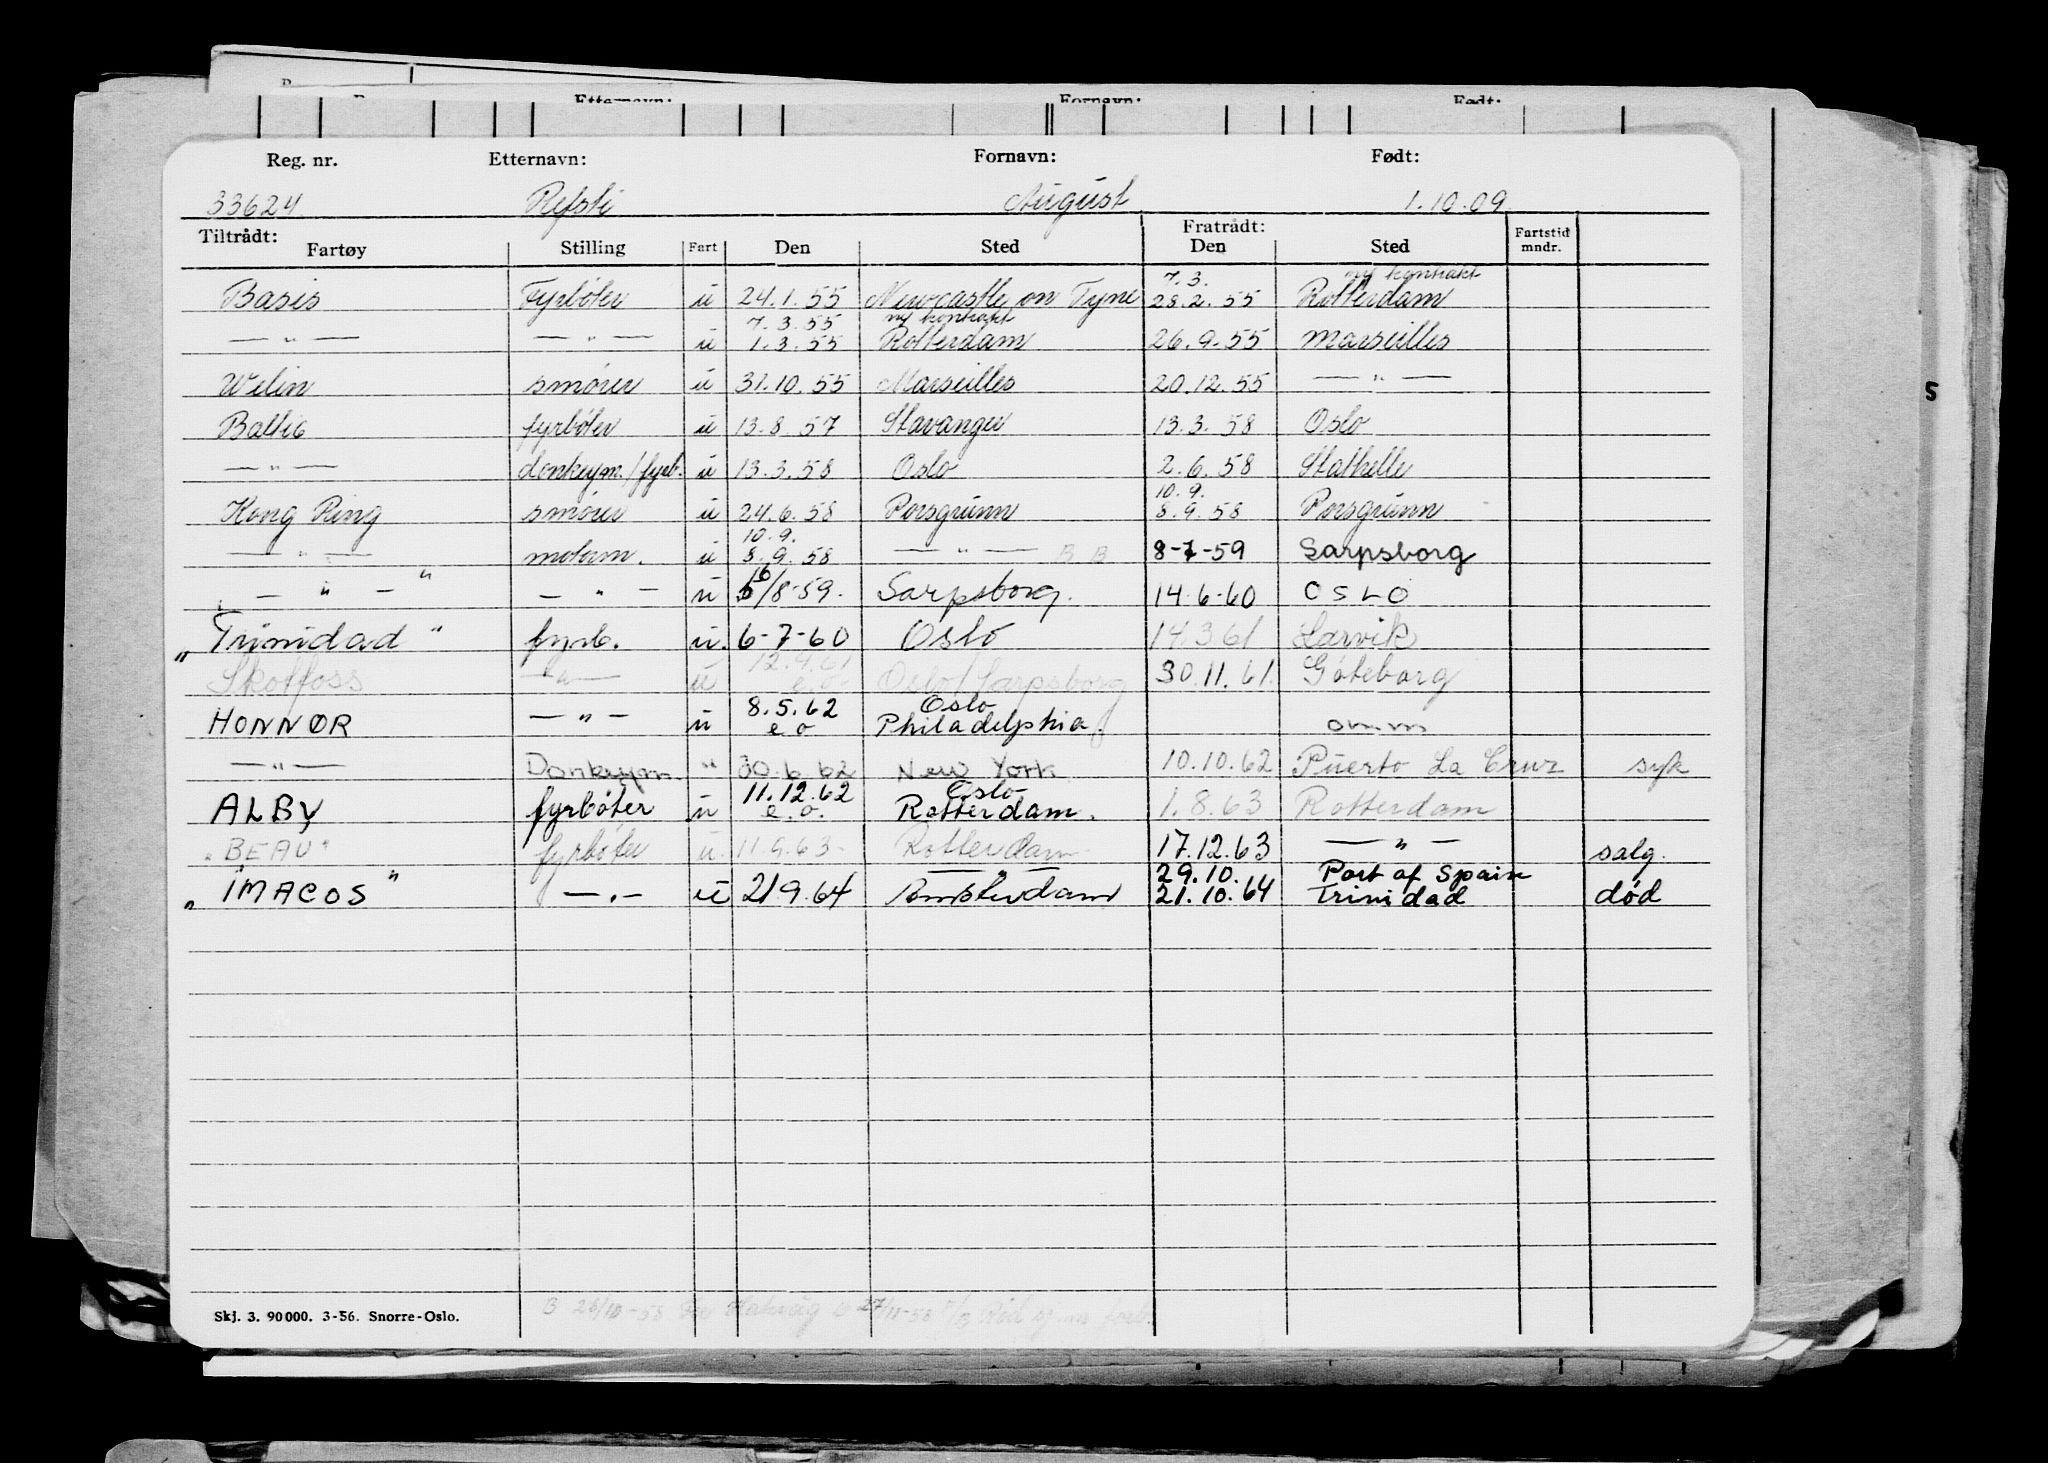 Etternavn: Fornavn: Født:
Reg. nr. Etternavn: Fornavn: Født:
33624 Refsti August 1.10.09
Tiltrådt: Fratrådt:
Fartøy Stilling Fart Den Sted Den Sted Fartstid mndr.
7.3. ny kontrakt
Basis Fyrbøter u 24.1.55 Newcastle on Tyne 28.2.55 Rotterdam
7.3.55 ny kontrakt
— " — — " — u 1.3.55 Rotterdam 26.9.55 Marseilles
Welin smører u 31.10.55 Marseilles 20.12.55 — " —
Baltic fyrbøter u 13.8.57 Stavanger 13.3.58 Oslo
— " — donkeym./fyrb. u 13.3.58 Oslo 2.6.58 Stathelle
10.9.
Kong Ring smører u 24.6.58 Porsgrunn 8.9.58 Porsgrunn
10.9.
— " — motorm. u 8.9.58 — " — B B 8-7-59 Sarpsborg
— " — " — " — u 16/8-59. Sarpsborg. 14-6-60 OSLO
„Trinidad" fyrb. u. 6-7-60 Oslo 14.3.61 Larvik
12.4.61
Skotfoss — " — u e.o. Oslo/Sarpsborg 30.11.61. Göteborg
8.5.62 Oslo
HONNØR — " — u e o Philadelphia. omm
— " — Donkeym. " 30.6.62 New York 10.10.62 Puerto La Cruz syk
11.12.62 Oslo
ALBY fyrbøter u e.o. Rotterdam. 1.8.63 Rotterdam
"BEAU" fyrbøter u. 11.9.63- Rotterdam 17.12.63 — " — salg.
— " — 29.10. Port of Spain
„IMACOS" — " — u 21.9.64 Amsterdam 21.10.64 Trinidad død
Skj. 3. 90 000. 3-56. Snorre-Oslo.
B 26/10-58 27/11-58
S